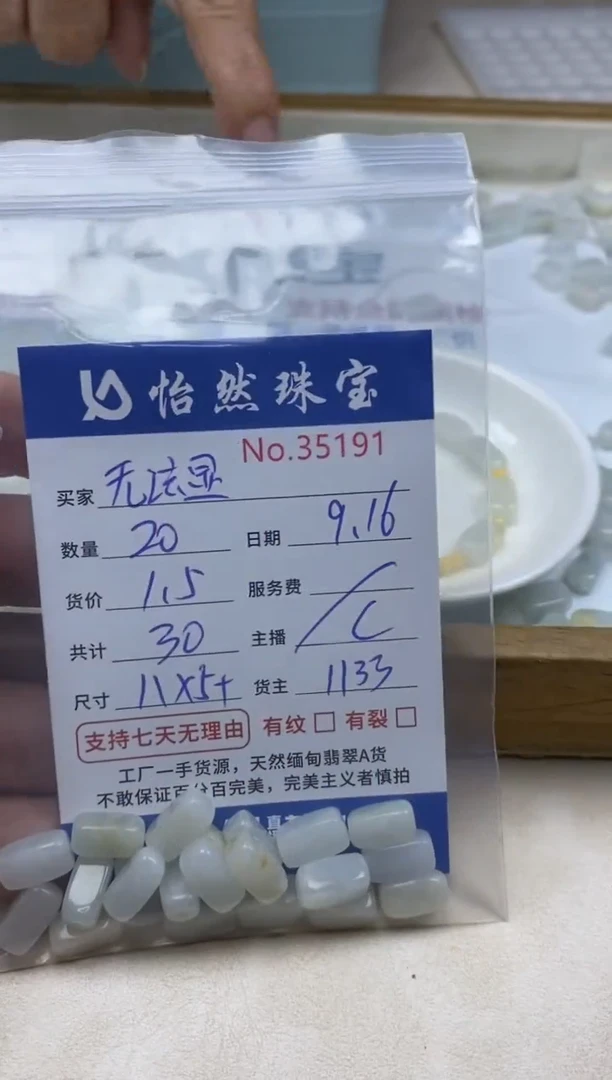 怡然珠宝
No.35191
买家 无法显
数量 20 日期 9.16
货价 1.5 服务费 /
共计 30 主播 C
尺寸 11X5+ 货主 1133
支持七天无理由 有纹 有裂
工厂一手货源，天然缅甸翡翠A货
不敢保证百分百完美，完美主义者慎拍